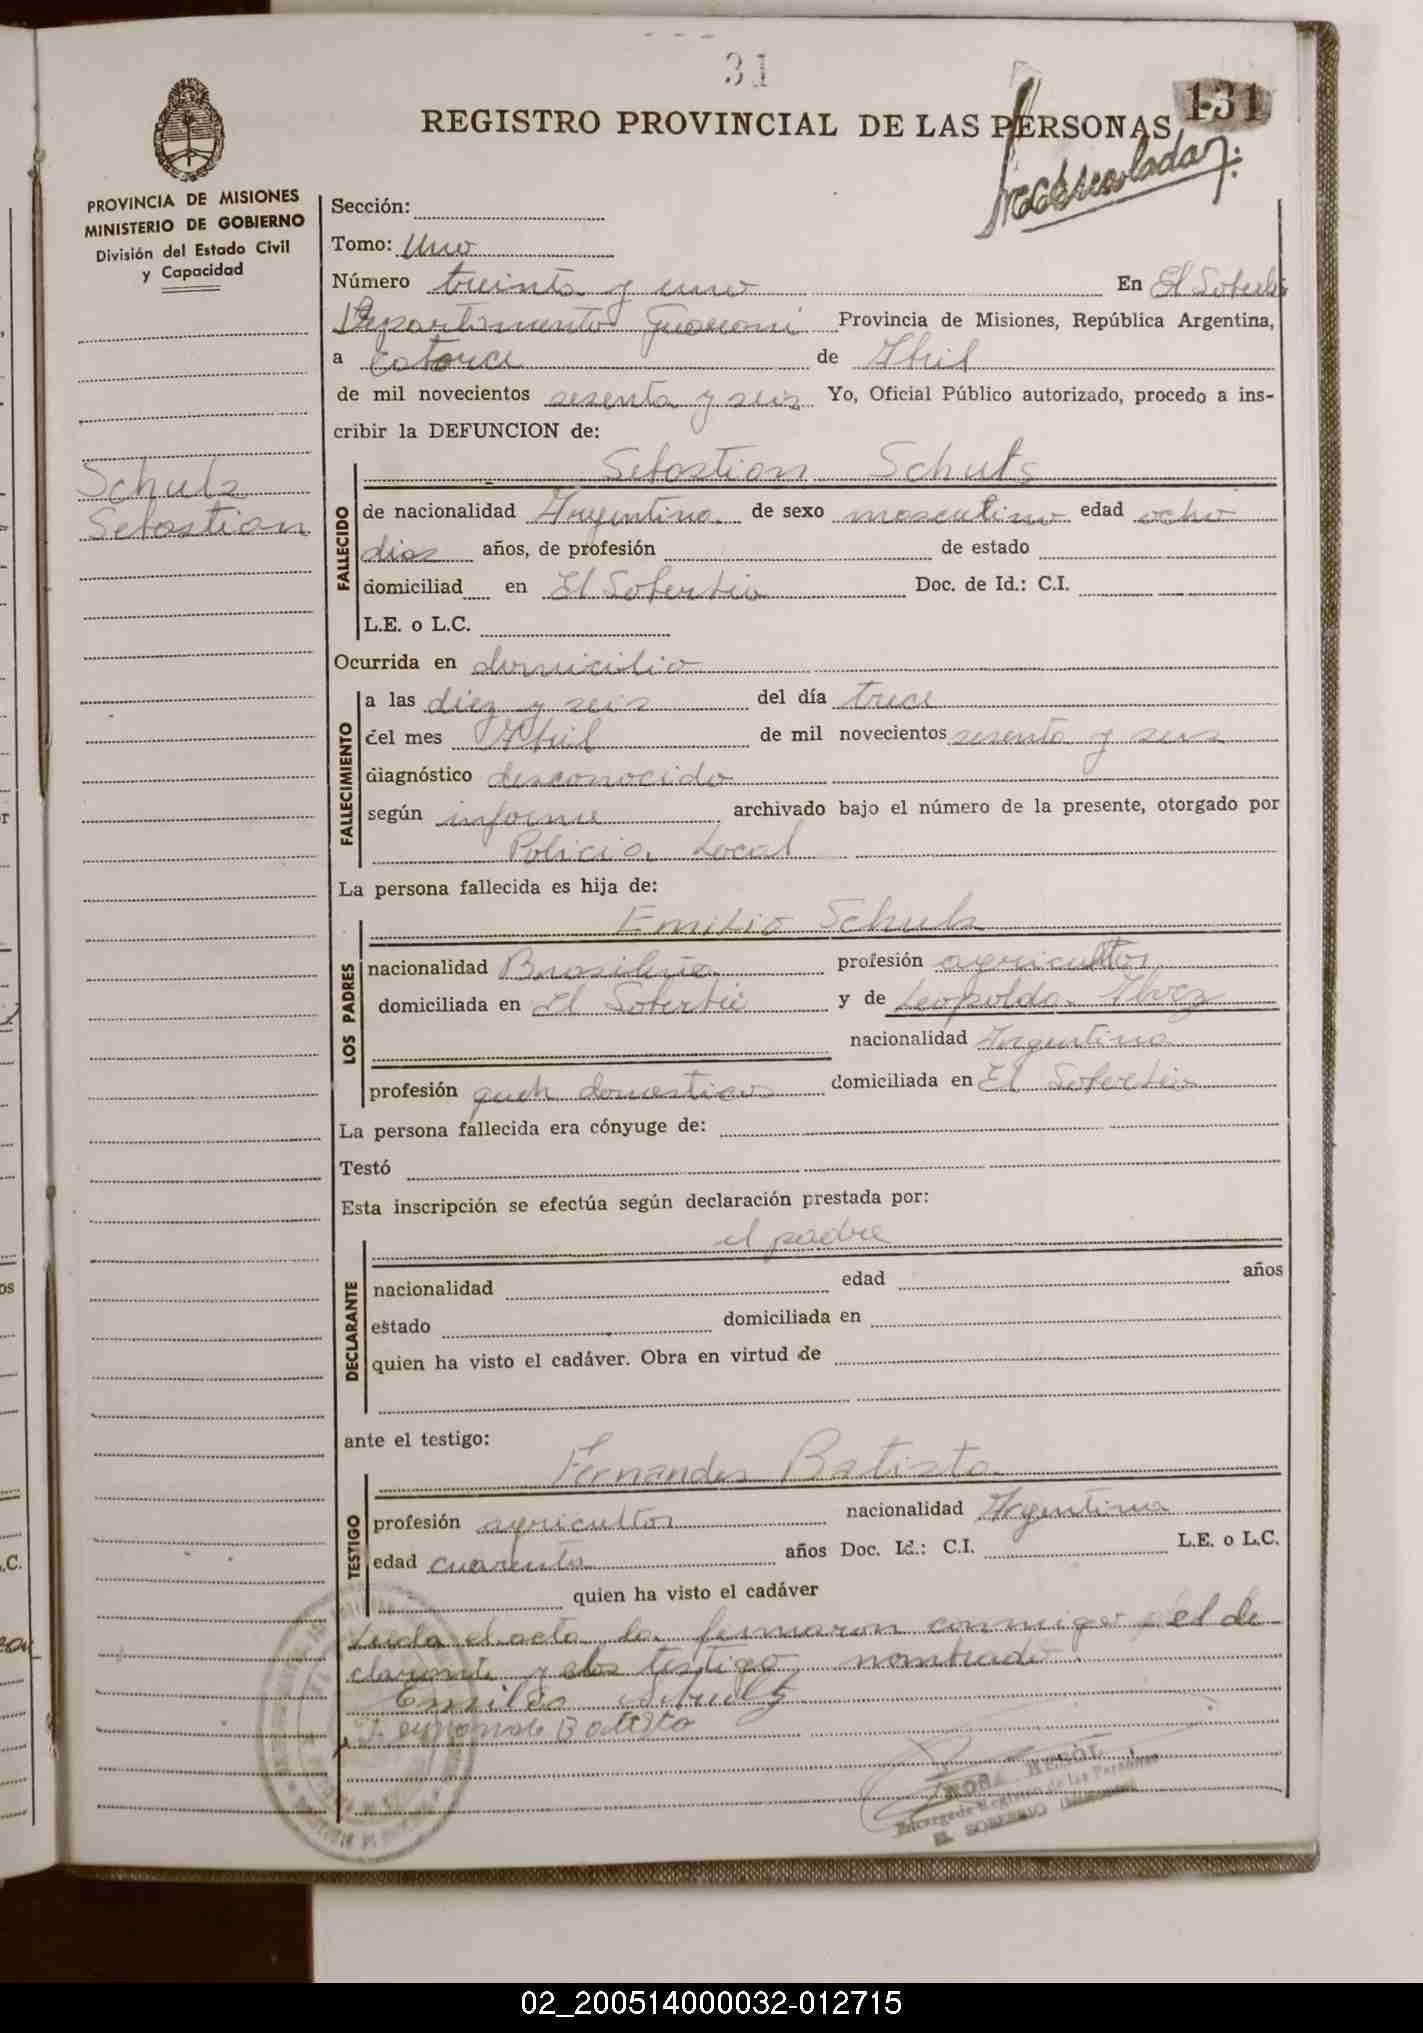 31
131
REGISTRO PROVINCIAL DE LAS PERSONAS
PROVINCIA DE MISIONES
MINISTERIO DE GOBIERNO
División del Estado Civil
y Capacidad
Schulz
Sebastian
Sección:
Tomo: Uno
Número treinta y uno En El Soberbio
Departamento Guarani Provincia de Misiones, República Argentina,
a Catorce de Abril
de mil novecientos sesenta y seis Yo, Oficial Público autorizado, procedo a ins-
cribir la DEFUNCION de:
Sebastian Schuls
FALLECIDO
de nacionalidad Argentina de sexo masculino edad ocho
dias años, de profesión de estado
domiciliad en El Soberbio Doc. de Id.: C.I.
L.E. o L.C.
Ocurrida en domicilio
FALLECIMIENTO
a las diez y seis del día trece
del mes Abril de mil novecientos sesenta y seis
diagnóstico desconocido
según informe archivado bajo el número de la presente, otorgado por
Policia Local
La persona fallecida es hija de:
Emilio Schulz
LOS PADRES
nacionalidad Brasilera profesión agricultor
domiciliada en El Soberbio y de Leopolda Alvez
nacionalidad Argentina
profesión queh domesticos domiciliada en El Soberbio
La persona fallecida era cónyuge de:
Testó
Esta inscripción se efectúa según declaración prestada por:
el padre
DECLARANTE
nacionalidad edad años
estado domiciliada en
quien ha visto el cadáver. Obra en virtud de
ante el testigo:
Fernandes Batista
TESTIGO
profesión agricultor nacionalidad Argentina
edad cuarenta años Doc. Id.: C.I. L.E. o L.C.
quien ha visto el cadáver
Leida el acta la firmaron conmigo, el de
clarante y testigo nombrado
Emilio Schulz
Batista
Encargado Registro de las Personas
EL SOBERBIO (Misiones)
02_200514000032-012715